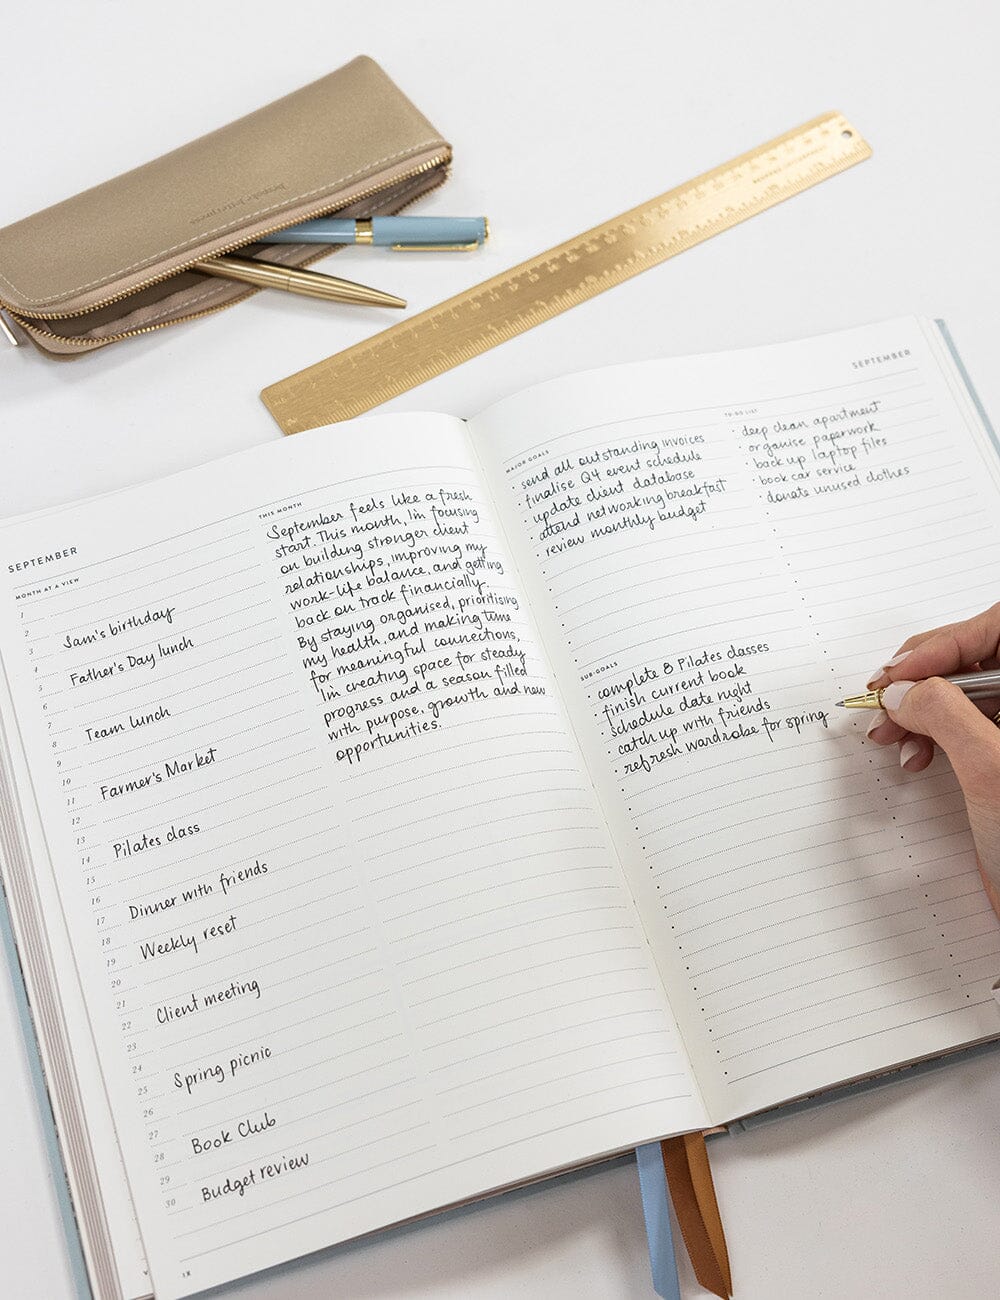 SEPTEMBER
MONTH AT A VIEW
1
2
3 Sam's birthday
4
5 Father's Day lunch
6
7
8 Team lunch
9
10
11 Farmer's Market
12
13
14 Pilates class
15
16
17 Dinner with friends
18
19 Weekly reset
20
21
22 Client meeting
23
24
25 Spring picnic
26
27
28 Book Club
29
30 Budget review
THIS MONTH
September feels like a fresh
start. This month, I'm focusing
on building stronger client
relationships, improving my
work-life balance, and getting
back on track financially.
By staying organised, prioritising
my health, and making time
for meaningful connections,
I'm creating space for steady
progress and a season filled
with purpose, growth and new
opportunities.
SEPTEMBER
MAJOR GOALS
· send all outstanding invoices
· finalise Q4 event schedule
· update client database
· attend networking breakfast
· review monthly budget
TO-DO LIST
· deep clean apartment
· organise paperwork
· back up laptop files
· book car service
· donate unused clothes
SUB-GOALS
· complete 8 Pilates classes
· finish current book
· schedule date night
· catch up with friends
· refresh wardrobe for spring